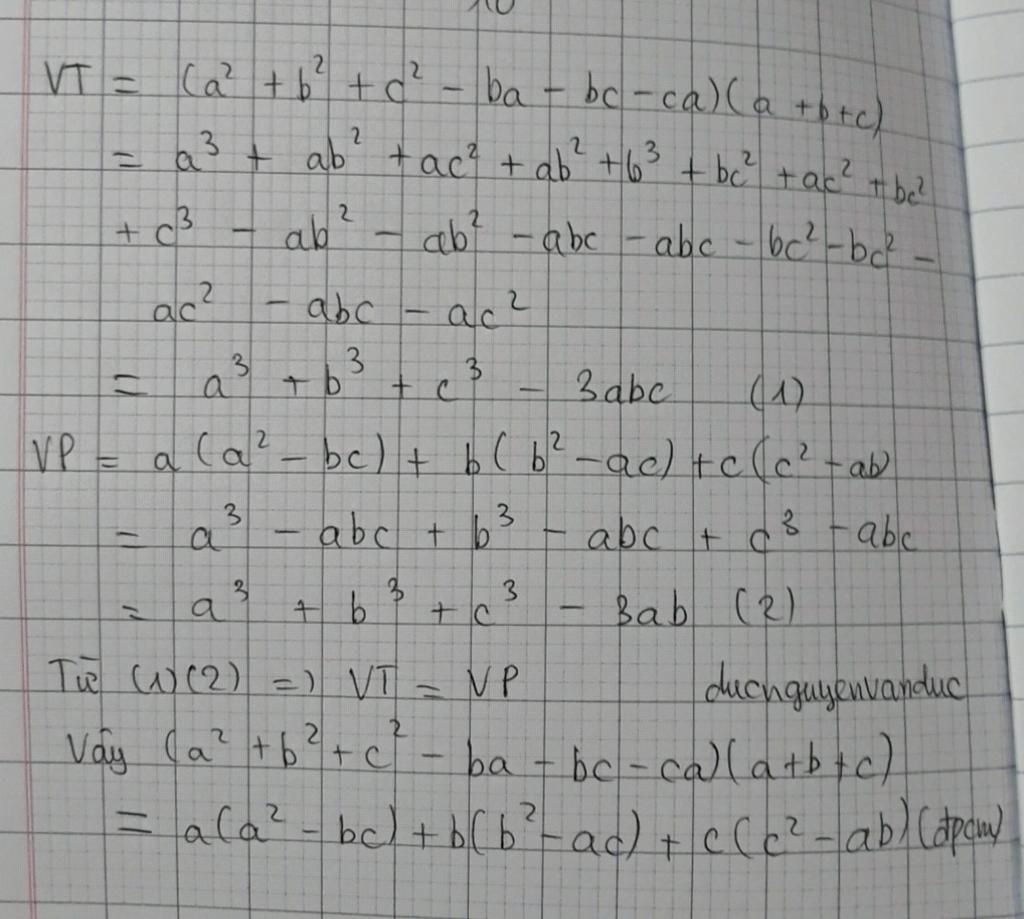 VT = (a² + b² + c² - ba - bc - ca)(a + b + c)
= a³ + ab² + ac² + ab² + b³ + bc² + ac² + bc²
+ c³ - ab² - ab² - abc - abc - bc² - bc² -
ac² - abc - ac²
= a³ + b³ + c³ - 3abc (1)
VP = a(a² - bc) + b(b² - ac) + c(c² - ab)
= a³ - abc + b³ - abc + c³ - abc
= a³ + b³ + c³ - 3ab (2)
Từ (1)(2) => VT = VP ducnguyenvanduc
Vậy (a² + b² + c² - ba - bc - ca)(a + b + c)
= a(a² - bc) + b(b² - ac) + c(c² - ab) (đpcm)